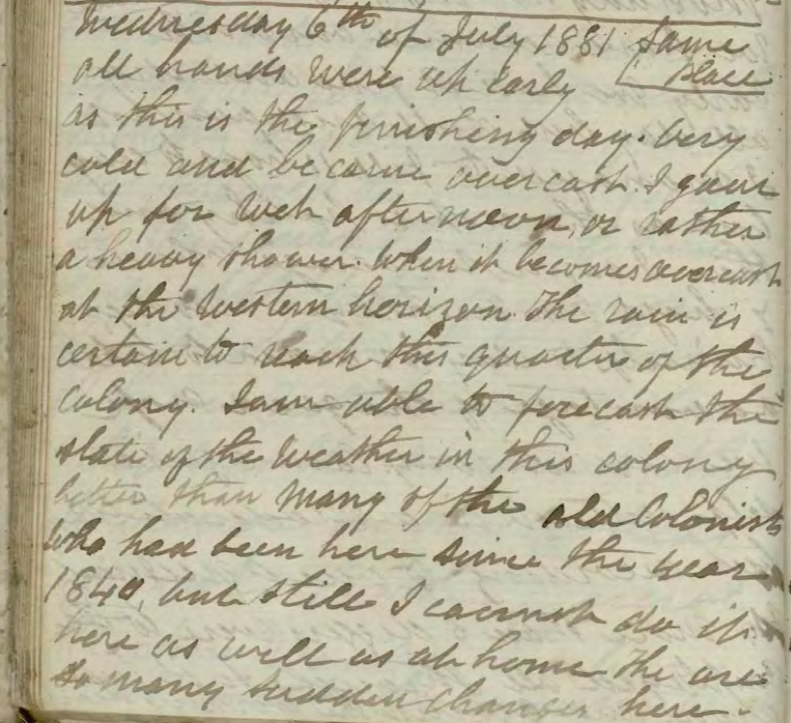 Wednesday 6th of July 1881 Same
all hands were up early Place
as this is the finishing day. Very
cold and became overcast. I gave
up for wet afternoon, or rather
a heavy shower. When it becomes overcast
at the Western horizon The rain is
certain to reach this quarter of the
Colony. I am able to forecast the
state of the Weather in this colony
better than many of the old Colonists
who had been here since the year
1840, but still I cannot do it
here as well as at home The are
so many sudden changes here.